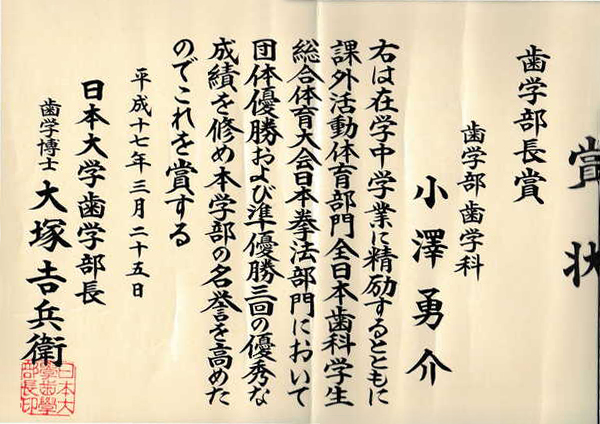 賞状
歯学部長賞
歯学部歯学科
小澤勇介
右は在学中学業に精励するとともに
課外活動体育部門全日本歯科学生
総合体育大会日本拳法部門において
団体優勝および準優勝三回の優秀な
成績を修め本学部の名誉を高めた
のでこれを賞する
平成十七年三月二十五日
日本大学歯学部長
歯学博士 大塚吉兵衛
日本大
学歯學
部長印